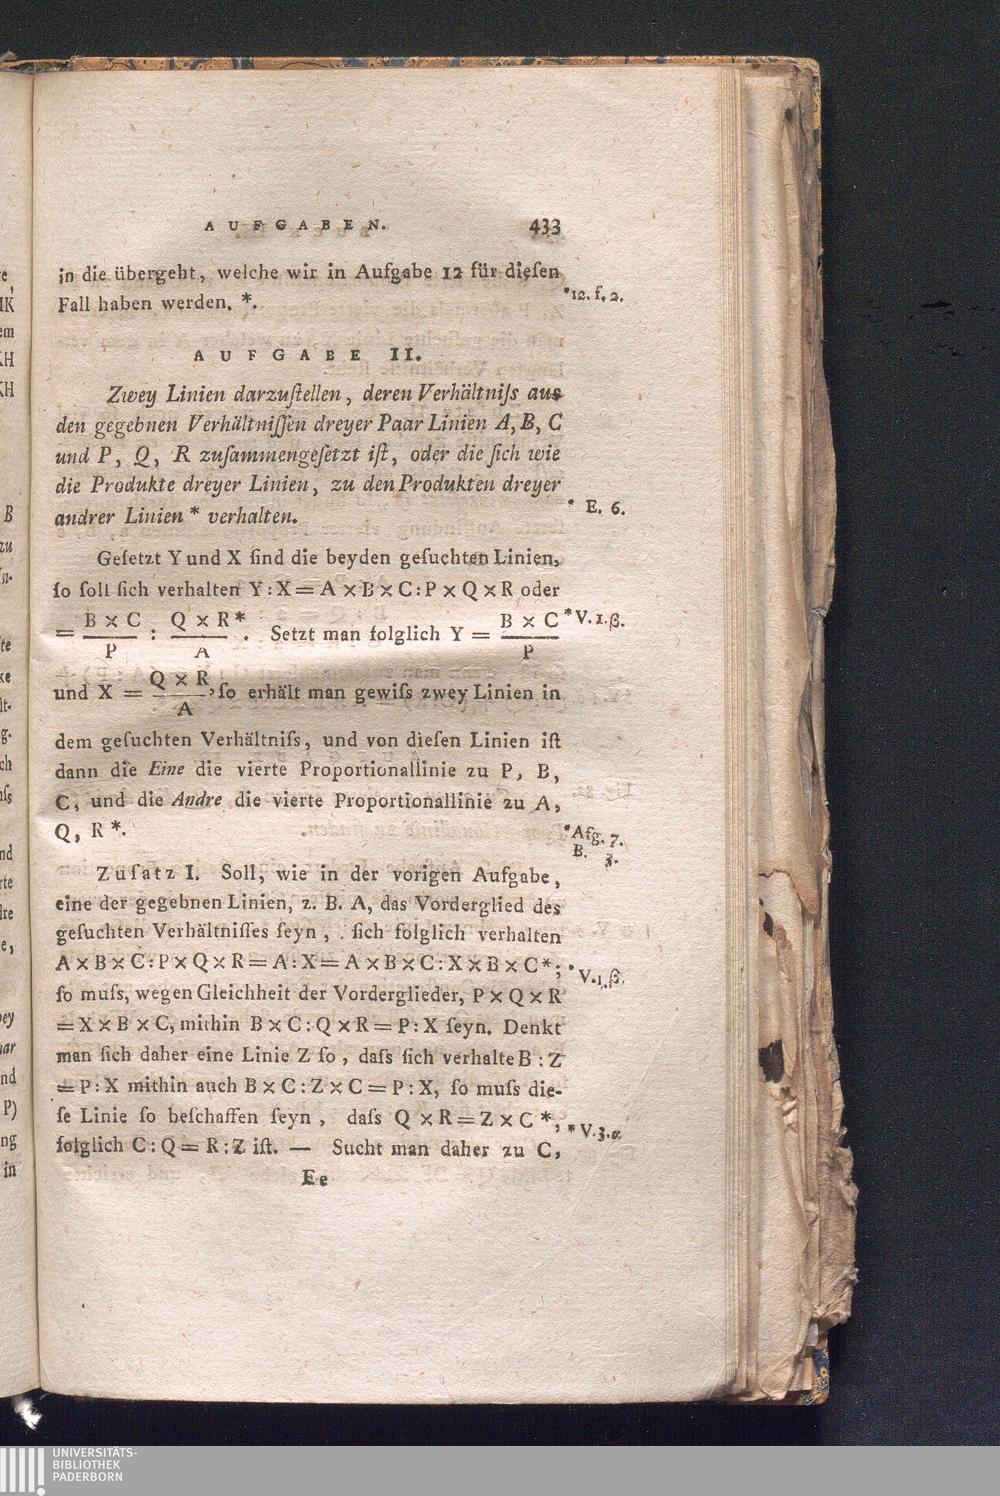 AUFGABEN. 433
in die übergeht, welche wir in Aufgabe 12 für dieſen
Fall haben werden. *.
*12. f. 2.
AUFGABE II.
Zwey Linien darzuſtellen, deren Verhältniſs aus
den gegebnen Verhältniſſen dreyer Paar Linien A, B, C
und P, Q, R zuſammengeſetzt iſt, oder die ſich wie
die Produkte dreyer Linien, zu den Produkten dreyer
andrer Linien * verhalten.
* E. 6.
Geſetzt Y und X ſind die beyden geſuchten Linien,
ſo ſoll ſich verhalten Y : X = A × B × C : P × Q × R oder
= B × C / P : Q × R* / A . Setzt man folglich Y = B × C / P
*V. 1. β.
und X = Q × R / A, ſo erhält man gewiſs zwey Linien in
dem geſuchten Verhältniſs, und von dieſen Linien iſt
dann die Eine die vierte Proportionallinie zu P, B,
C, und die Andre die vierte Proportionallinie zu A,
Q, R *.
*Afg. 7.
B. 3.
Zuſatz I. Soll, wie in der vorigen Aufgabe,
eine der gegebnen Linien, z. B. A, das Vorderglied des
geſuchten Verhältniſſes ſeyn, ſich folglich verhalten
A × B × C : P × Q × R = A : X = A × B × C : X × B × C *;
*V. 1. β.
ſo muſs, wegen Gleichheit der Vorderglieder, P × Q × R
= X × B × C, mithin B × C : Q × R = P : X ſeyn. Denkt
man ſich daher eine Linie Z ſo, daſs ſich verhalte B : Z
= P : X mithin auch B × C : Z × C = P : X, ſo muſs die-
ſe Linie ſo beſchaffen ſeyn, daſs Q × R = Z × C *,
* V. 3. α
folglich C : Q = R : Z iſt. — Sucht man daher zu C,
Ee
UNIVERSITÄTS-
BIBLIOTHEK
PADERBORN